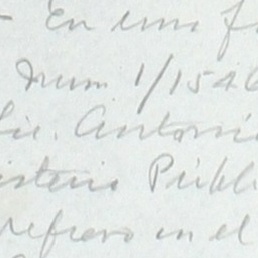 - En una f
Num 1/1546
Lic. Antonio
isterio Públ
refiero en el